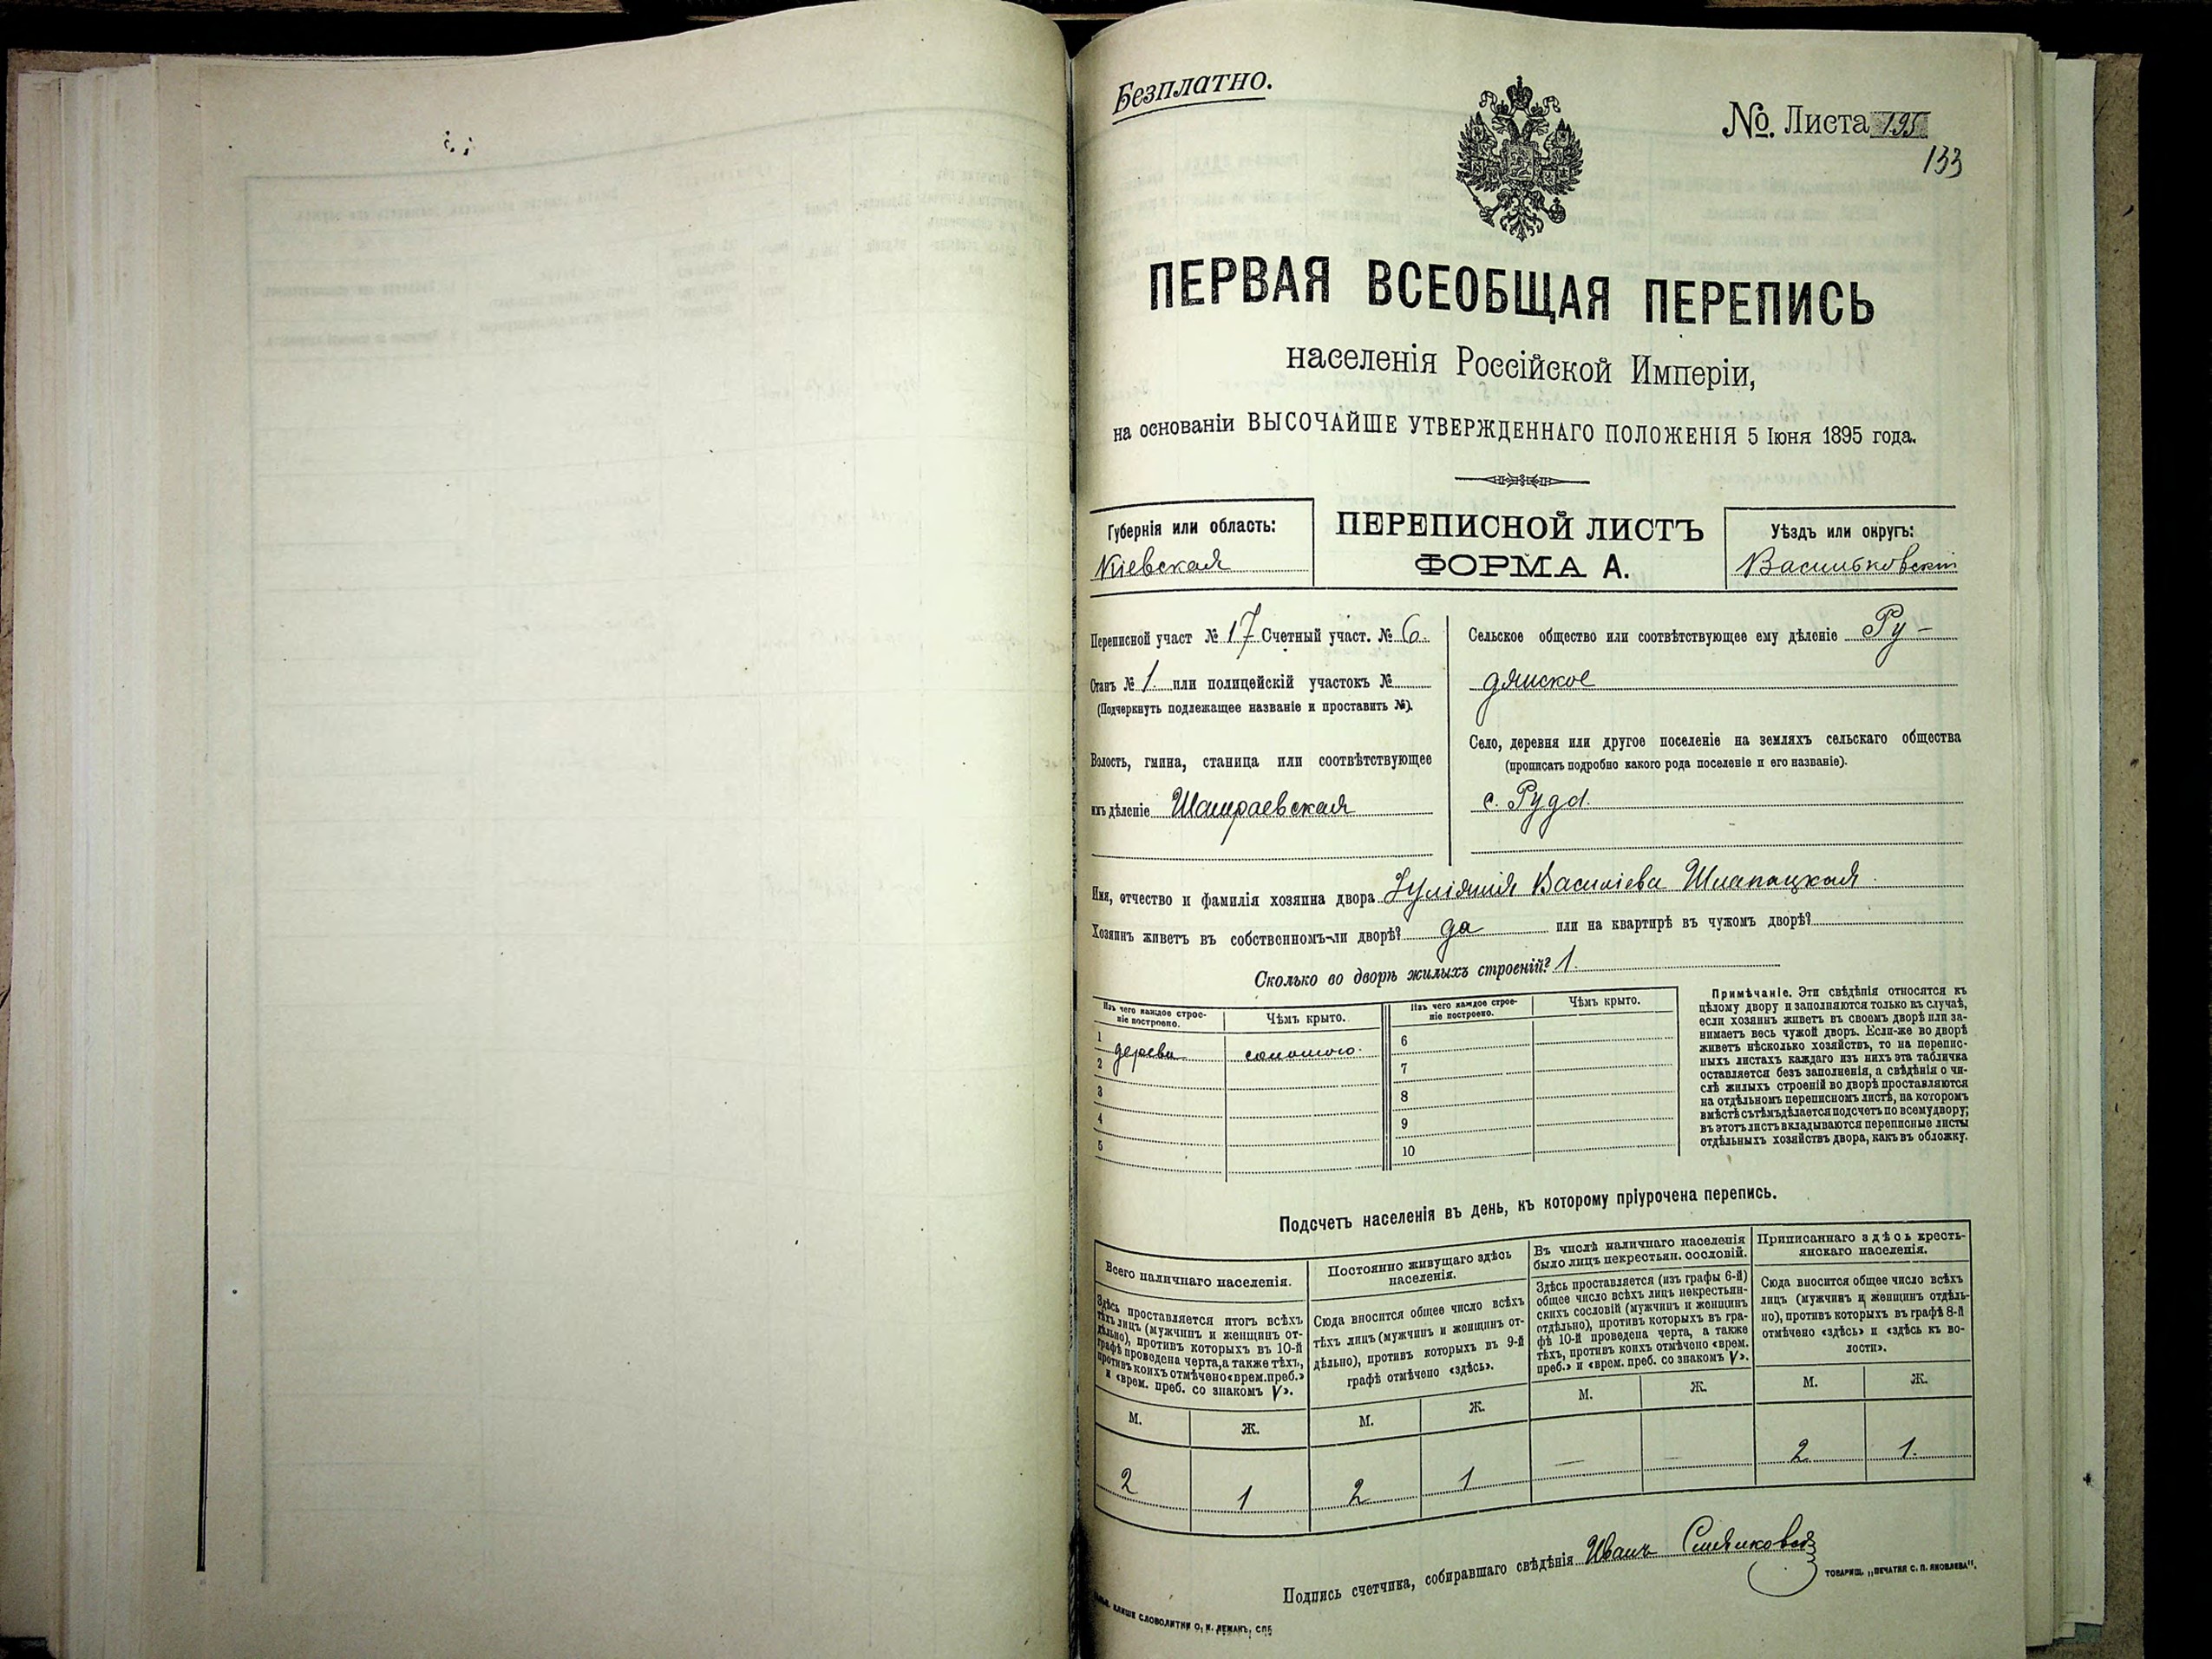 Безплатно.
№. Листа 195
133
ПЕРВАЯ ВСЕОБЩАЯ ПЕРЕПИСЬ
населенія Россійской Имперіи,
на основаніи ВЫСОЧАЙШЕ УТВЕРЖДЕННАГО ПОЛОЖЕНІЯ 5 Іюня 1895 года.
Губернія или область:
Кіевская
ПЕРЕПИСНОЙ ЛИСТЪ
ФОРМА А.
Уѣздъ или округъ:
Васильковскій
Переписной участ № 17 Счетный участ. № 6.
Станъ № 1. или полицейскій участокъ №
(Подчеркнуть подлежащее названіе и проставить №).
Волость, гмина, станица или соотвѣтствующее
имъ дѣленіе Шамраевская
Сельское общество или соотвѣтствующее ему дѣленіе Ру-
дянское
Село, деревня или другое поселеніе на земляхъ сельскаго общества
(прописать подробно какого рода поселеніе и его названіе).
с. Руда.
Имя, отчество и фамилія хозяина двора Іуліянія Василіева Шпапацкая.
Хозяинъ живетъ въ собственномъ-ли дворѣ? да или на квартирѣ въ чужомъ дворѣ?
Сколько во дворѣ жилыхъ строеній? 1.
Изъ чего каждое строе-
ніе построено.
Чѣмъ крыто.
Изъ чего каждое строе-
ніе построено.
Чѣмъ крыто.
1 дерева соломою.
2
3
4
5
6
7
8
9
10
Примѣчаніе. Эти свѣдѣнія относятся къ
цѣлому двору и заполняются только въ случаѣ,
если хозяинъ живетъ въ своемъ дворѣ или за-
нимаетъ весь чужой дворъ. Если-же во дворѣ
живетъ нѣсколько хозяйствъ, то на перепис-
ныхъ листахъ каждаго изъ нихъ эта табличка
оставляется безъ заполненія, а свѣдѣнія о чи-
слѣ жилыхъ строеній во дворѣ проставляются
на отдѣльномъ переписномъ листѣ, на которомъ
вмѣстѣ съ тѣмъ дѣлается подсчетъ по всему двору;
въ этотъ листъ вкладываются переписные листы
отдѣльныхъ хозяйствъ двора, какъ въ обложку.
Подсчетъ населенія въ день, къ которому пріурочена перепись.
Всего наличнаго населенія.
Здѣсь проставляется итогъ всѣхъ
тѣхъ лицъ (мужчинъ и женщинъ от-
дѣльно), противъ которыхъ въ 10-й
графѣ проведена черта, а также тѣхъ,
противъ коихъ отмѣчено «врем. преб.»
и «врем. преб. со знакомъ V».
М. Ж.
2 1
Постоянно живущаго здѣсь
населенія.
Сюда вносится общее число всѣхъ
тѣхъ лицъ (мужчинъ и женщинъ от-
дѣльно), противъ которыхъ въ 9-й
графѣ отмѣчено «здѣсь».
М. Ж.
2 1
Въ числѣ наличнаго населенія
было лицъ некрестьян. сословій.
Здѣсь проставляется (изъ графы 6-й)
общее число всѣхъ лицъ некрестьян-
скихъ сословій (мужчинъ и женщинъ
отдѣльно), противъ которыхъ въ гра-
фѣ 10-й проведена черта, а также
тѣхъ, противъ коихъ отмѣчено «врем.
преб.» и «врем. преб. со знакомъ V».
М. Ж.
— —
Приписаннаго здѣсь кресть-
янскаго населенія.
Сюда вносится общее число всѣхъ
лицъ (мужчинъ и женщинъ отдѣль-
но), противъ которыхъ въ графѣ 8-й
отмѣчено «здѣсь» и «здѣсь къ во-
лости».
М. Ж.
2. 1.
Подпись счетчика, собиравшаго свѣдѣнія Иванъ
ТОВАРИЩ. „ПЕЧАТНЯ С. П. ЯКОВЛЕВА".
КЛИШЕ СЛОВОЛИТНИ О. И. ЛЕМАНЪ, СПБ